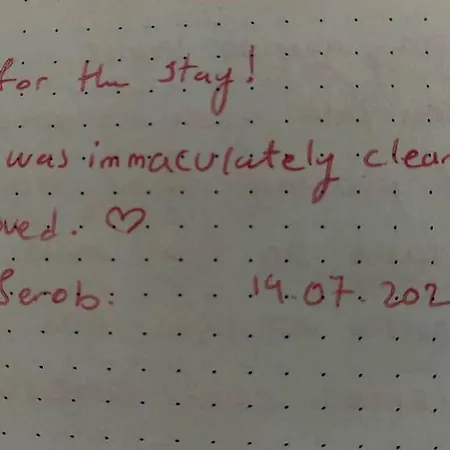 for the stay!
was immaculately clean
oved. ♡
Serob: 19.07.202